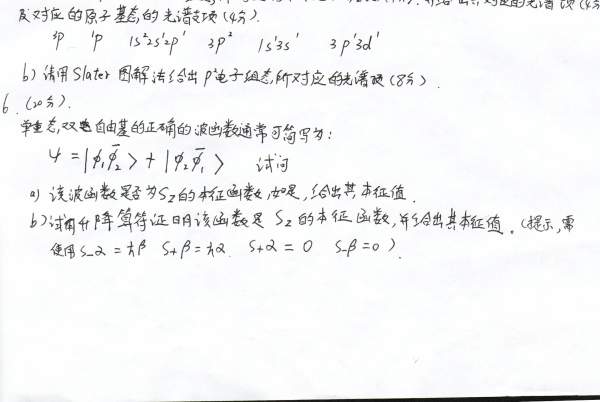 及对应的原子基态的光谱支项(4分).
³P ¹P 1s²2s¹2p¹ 3p² 1s¹3s¹ 3p¹3d¹
b) 请用Slater图解法给出p²电子组态所对应的光谱项(8分).
6. (20分).
单重态双自由基的正确的波函数通常可简写为:
Ψ = |φ₁φ̄₂> + |φ₂φ̄₁> 试问
a) 该波函数是否为Sz的本征函数,如是,给出其本征值.
b) 试用升降算符证明该函数是 S₂ 的本征函数,并给出其本征值。(提示,需
使用 S₋α = ħβ S₊β = ħα S₊α = 0 S₋β = 0).